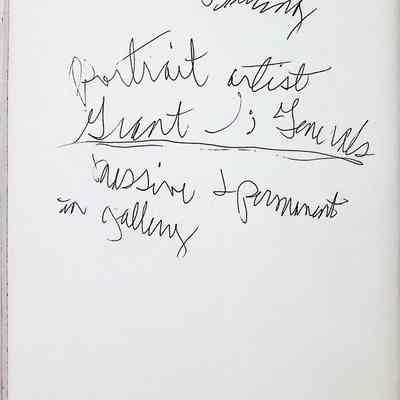 portrait artist
Grant Generals
massive & permanent
in gallery